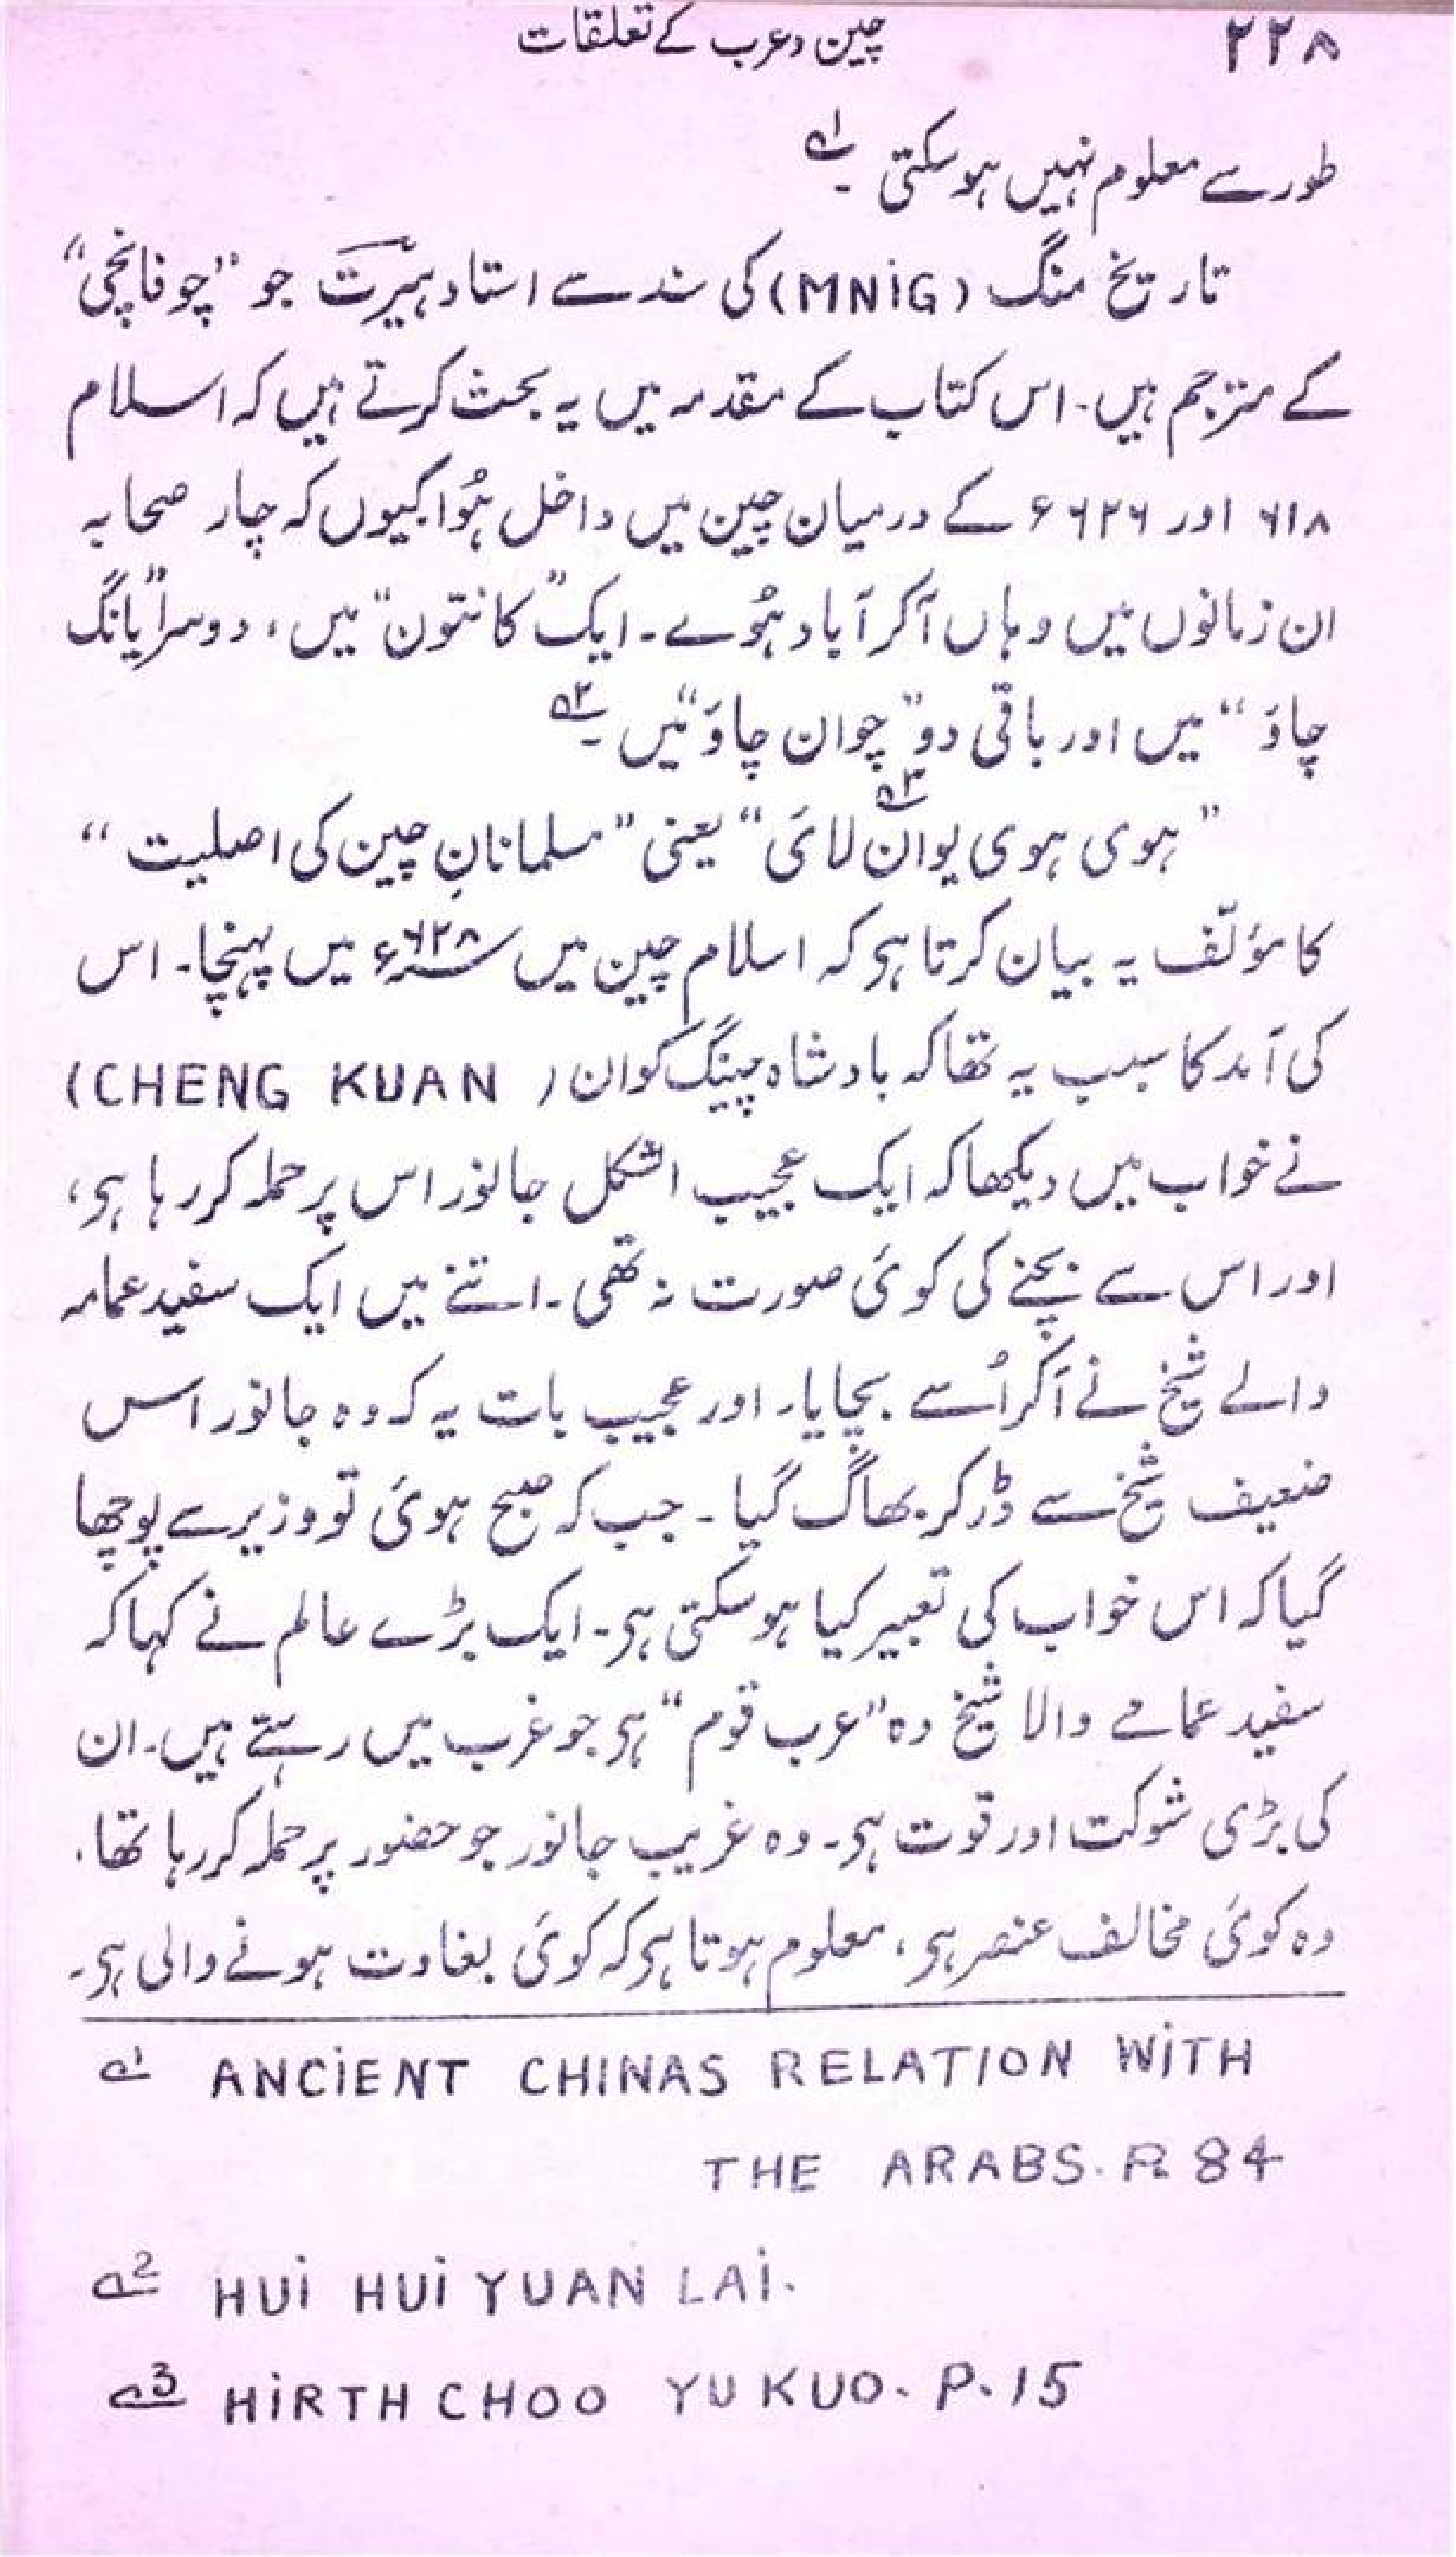 ۲۲۸ چین و عرب کے تعلقات
طور سے معلوم نہیں ہوسکتی ۔ ؎۱
تاریخ منگ (MNiG) کی سند سے استاد ہیرتؔ جو ”چوفانچی“
کے مترجم ہیں۔ اس کتاب کے مقدمہ میں یہ بحث کرتے ہیں کہ اسلام
۶۱۸ اور ۶۲۶ء کے درمیان چین میں داخل ہُوا کیوں کہ چار صحابہ
ان زمانوں میں وہاں آکر آباد ہُوے۔ ایک ”کانتون“ میں، دوسرا ”یانگ
چاؤ“ میں اور باقی دو ”چوان چاؤ“ میں ۔ ؎۲
”ہوی ہوی یوان لائ“ ؎۳ یعنی ”مسلمانانِ چین کی اصلیت“
کا مؤلّف یہ بیان کرتا ہی کہ اسلام چین میں ۶۲۸ء میں پہنچا۔ اس
کی آمد کا سبب یہ تھا کہ بادشاہ چینگ کوان (CHENG KUAN)
نے خواب میں دیکھا کہ ایک عجیب الشکل جانور اس پر حملہ کر رہا ہی،
اور اس سے بچنے کی کوئ صورت نہ تھی ۔ اتنے میں ایک سفید عمامہ
والے شیخ نے آکر اُسے بچایا۔ اور عجیب بات یہ کہ وہ جانور اس
ضعیف شیخ سے ڈر کر بھاگ گیا ۔ جب کہ صبح ہوئ تو وزیر سے پوچھا
گیا کہ اس خواب کی تعبیر کیا ہوسکتی ہی۔ ایک بڑے عالم نے کہا کہ
سفید عمامے والا شیخ وہ ”عرب قوم“ ہی جو غرب میں رہتے ہیں۔ ان
کی بڑی شوکت اور قوت ہی۔ وہ غریب جانور جو حضور پر حملہ کر رہا تھا،
وہ کوئ مخالف عنصر ہی، معلوم ہوتا ہی کہ کوئ بغاوت ہونے والی ہی۔
؎۱ ANCiENT CHINAS RELATION WiTH
THE ARABS. P. 84
؎2 HUi HUi YUAN LAi.
؎3 HiRTH CHOO YU KUO. P. 15